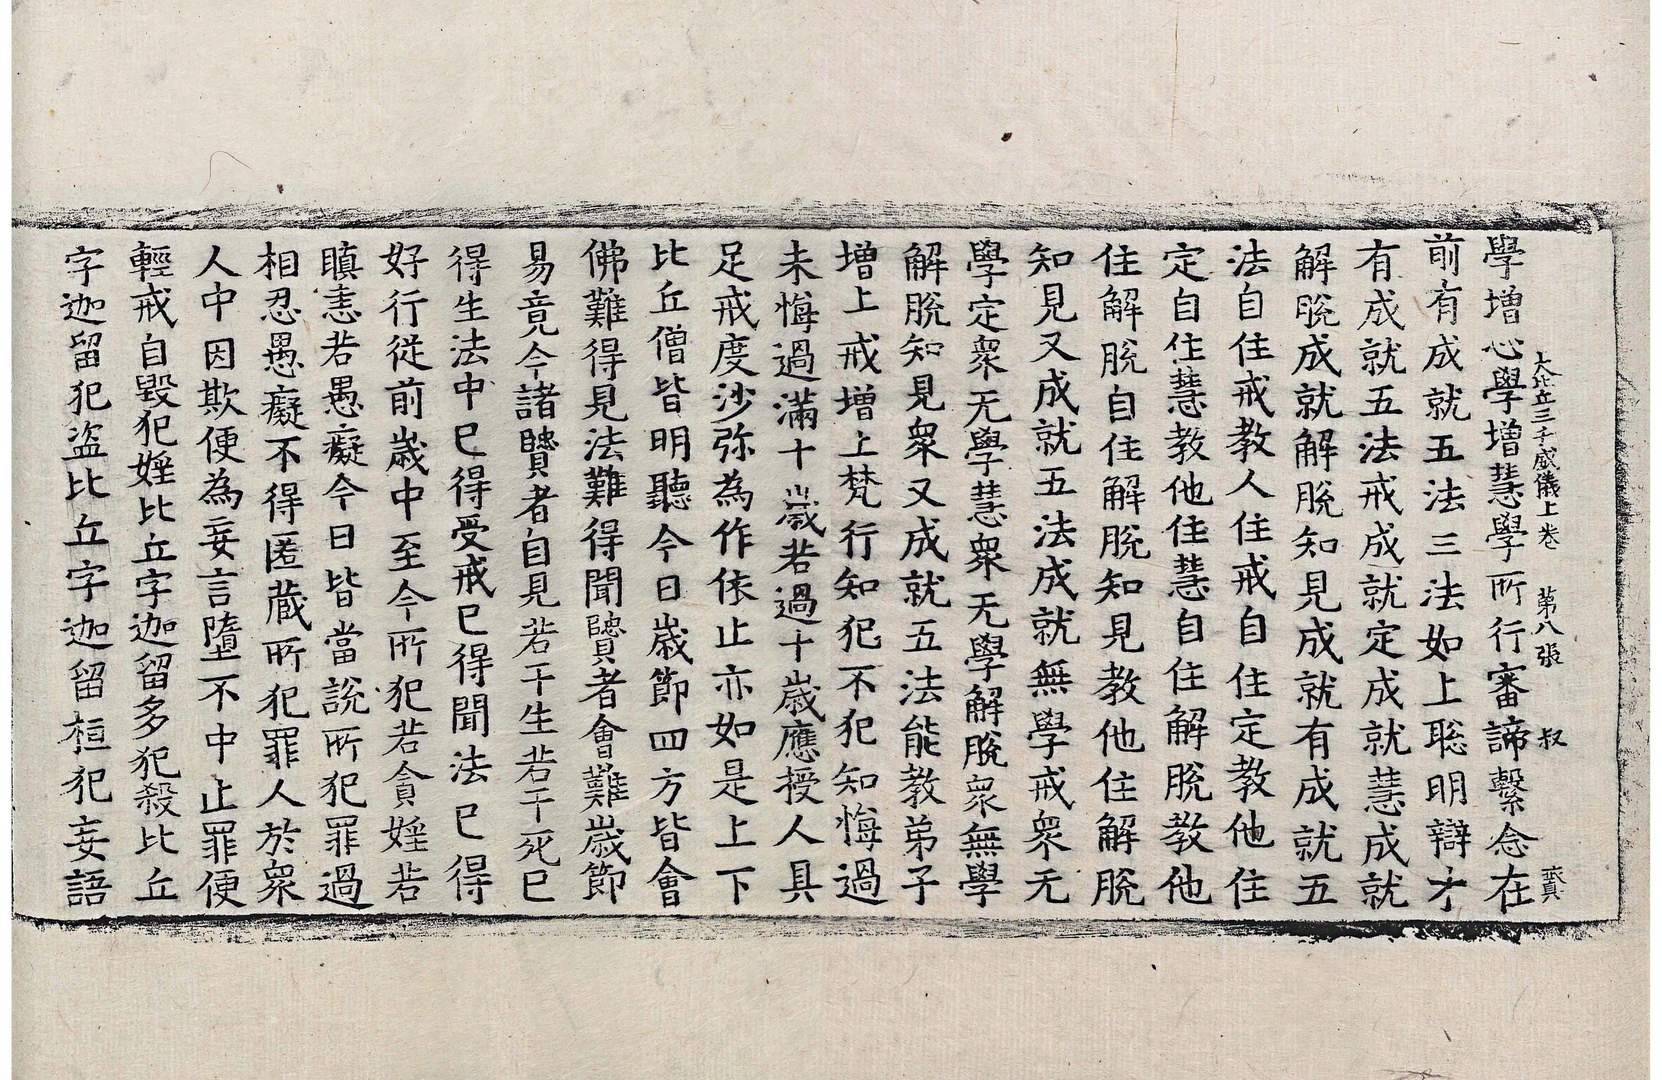 大比丘三千威儀上卷 第八張 叔
學增心學增慧學所行審諦繫念在
前有成就五法三法如上聡明辯才
有成就五法戒成就定成就慧成就
解脫成就解脫知見成就有成就五
法自住戒教人住戒自住定教他住
定自住慧教他住慧自住解脫教他
住解脫自住解脫知見教他住解脫
知見又成就五法成就無學戒衆无
學定衆无學慧衆无學解脫衆無學
解脫知見衆又成就五法能教弟子
增上戒增上梵行知犯不犯知悔過
未悔過滿十歲若過十歲應授人具
足戒度沙弥為作依止亦如是上下
比丘僧皆明聽今日歲節四方皆會
佛難得見法難得聞賢者會難歲節
易竟今諸賢者自見若干生若干死已
得生法中已得受戒已得聞法已得
好行從前歲中至今所犯若貪婬若
瞋恚若愚癡今日皆當說所犯罪過
相忍愚癡不得匿藏所犯罪人於衆
人中因欺便為妄言墮不中止罪便
輕戒自毀犯婬比丘字迦留多犯殺比丘
字迦留犯盜比丘字迦留桓犯妄語